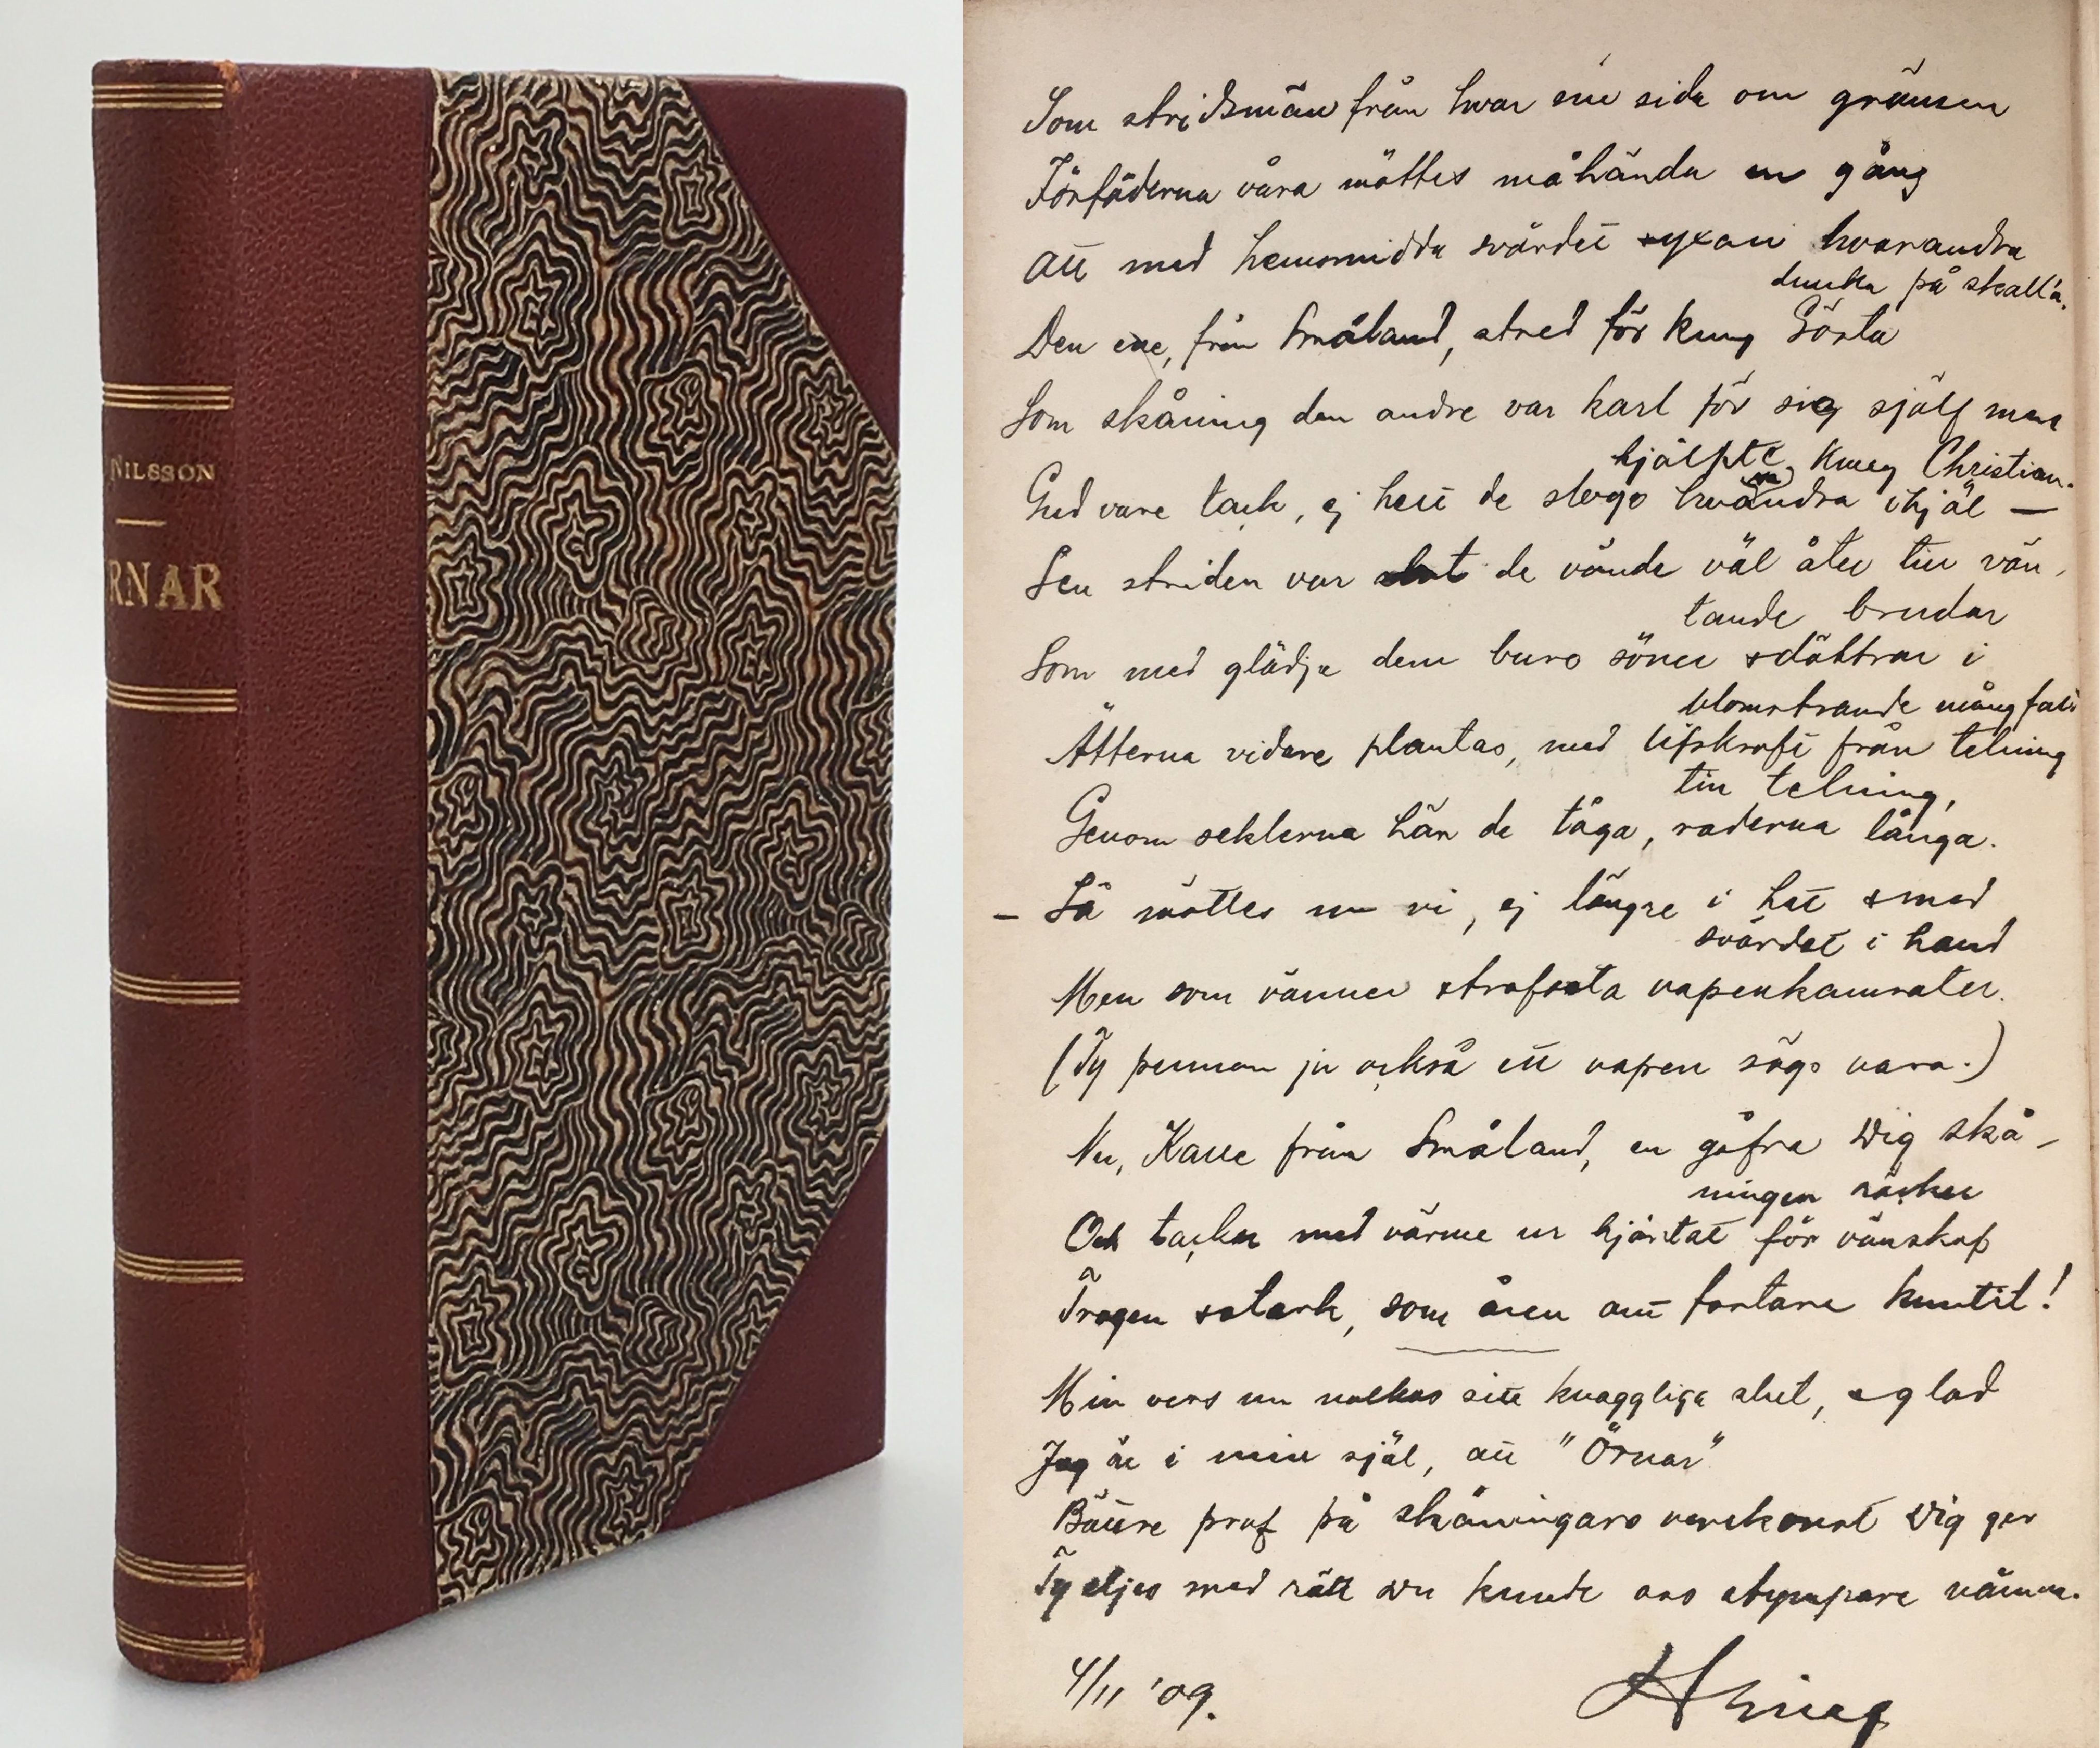 NILSSON
RNAR
Som stridsmän från hvar sin sida om gränsen
Förfäderna våra möttes måhända en gång
Att med hemsmidda svärdet + yxan hvarandra
dunka på skalla.
Den ene, från Småland, stred för kung Gösta
Som skåning den andre var karl för sig själf men
hjälpte Kung Christian.
Gud vare tack, ej helt de slogo hvarandra ihjäl —
Sen striden var slut de vände väl åter till vän-
tande brudar
Som med glädje dem buro söner + döttrar i
blomstrande mångfald
Ätterna vidare plantas, med lifskraft från telning
till telning,
Genom seklerna hän de tåga, raderna långa.
— Så möttes nu vi, ej längre i hat + med
svärdet i hand
Men som vänner + trofasta vapenkamrater.
(Ty pennan ju också ett vapen sägs vara.)
Nu, Kalle från Småland, en gåfva Dig skå-
ningen räcker
Och tackar med värme ur hjärtat för vänskap
Trogen + stark, som åren att fortare hunnit!
Min vers nu nalkas sitt knaggliga slut, + glad
Jag är i min själ, att "Örnar"
Bättre prof på skåningars verskonst Dig ger
Ty eljes med rätt Du kunde oss stympare nämna.
4/11 '09.